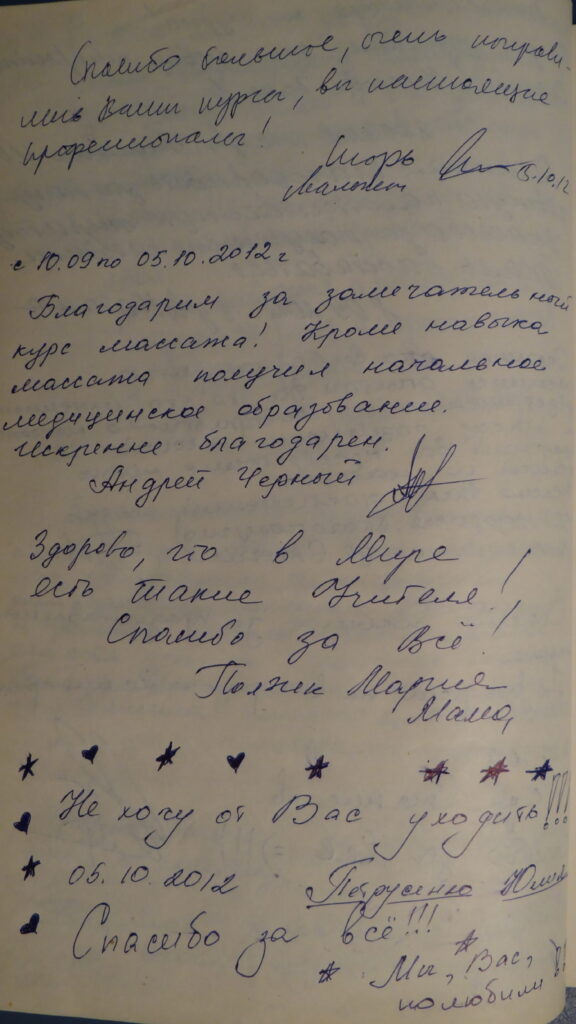 Спасибо большое, очень понрави-
лись Ваши курсы, вы настоящие
профессионалы!
Игорь
с 10.09 по 05.10.2012 г
Благодарим за замечательный
курс массажа! Кроме навыка
массажа получил начальное
медицинское образование.
Искренне благодарен.
Андрей Черный
Здорово, что в Мире
есть такие Учителя!
Спасибо за Всё!
Мария
Мама,
Не хочу от Вас уходить!!!
05.10.2012 Петрусенко Юлия
Спасибо за всё!!!
Мы, Вас,
полюбили!!